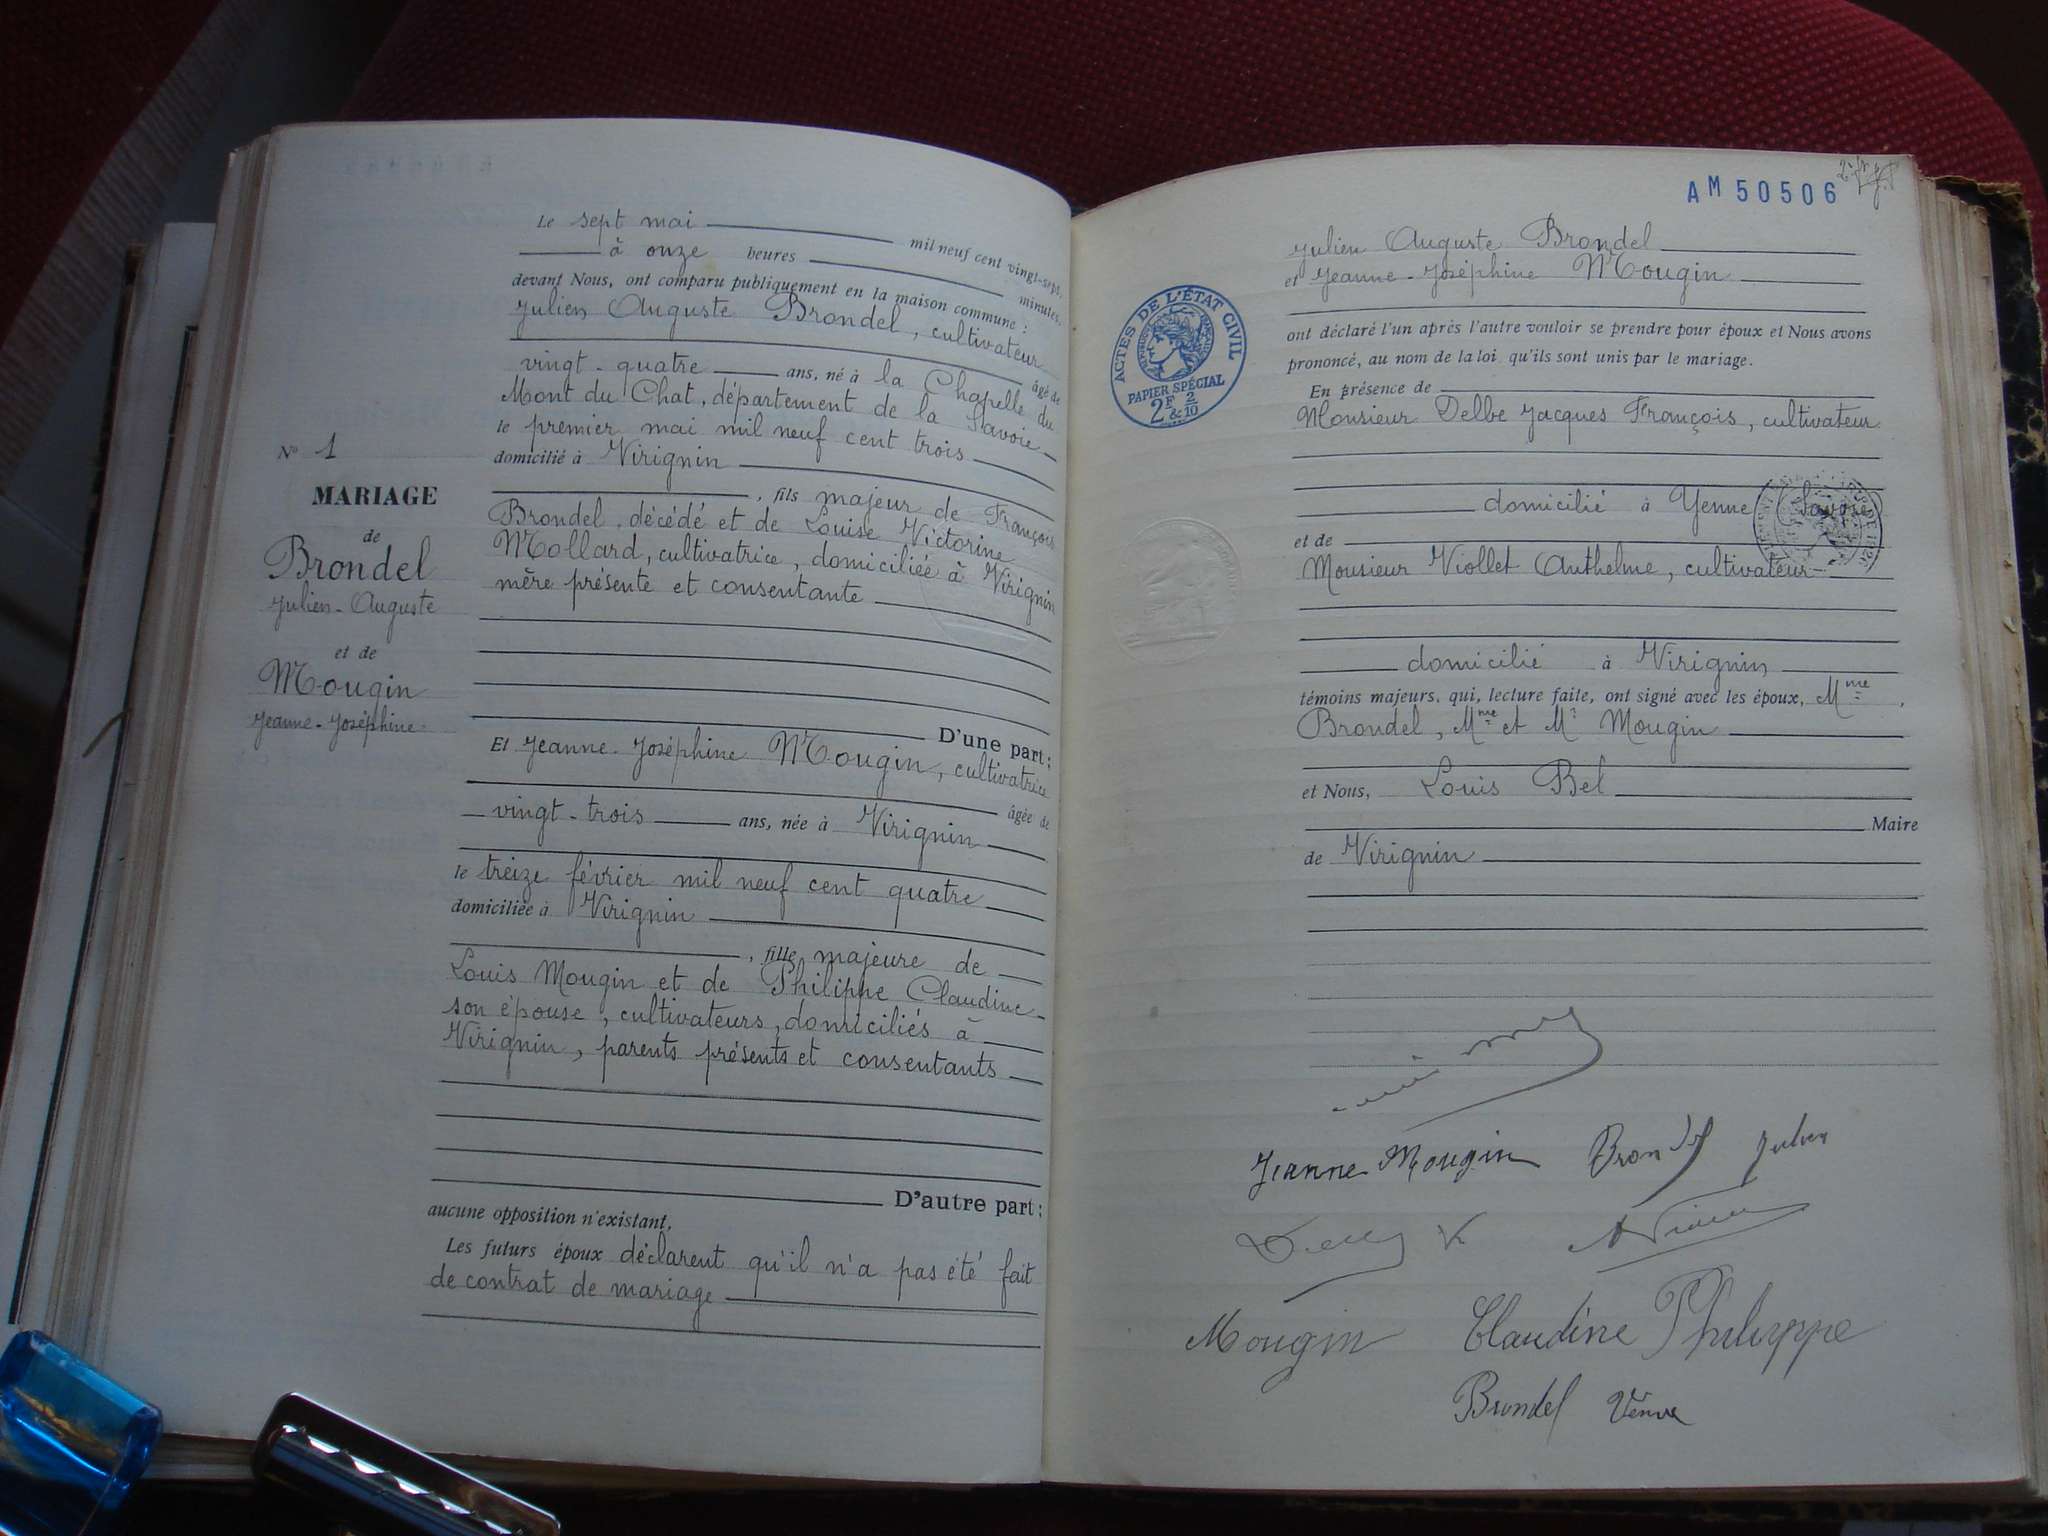 Le sept mai mil neuf cent vingt-sept,
à onze heures minutes,
devant Nous, ont comparu publiquement en la maison commune :
Julien Auguste Brondel, cultivateur
âgé de
vingt-quatre ans, né à la Chapelle du
Mont du Chat, département de la Savoie
le premier mai mil neuf cent trois
domicilié à Virignin
, fils majeur de François
Brondel, décédé et de Louise Victorine
Mollard, cultivatrice, domiciliée à Virignin
mère présente et consentante
N° 1
MARIAGE
de
Brondel
Julien-Auguste
et de
Mougin
Jeanne-Joséphine
D'une part ;
Et Jeanne-Joséphine Mougin, cultivatrice
âgée de
vingt-trois ans, née à Virignin
le treize février mil neuf cent quatre
domiciliée à Virignin
, fille majeure de
Louis Mougin et de Philippe Claudine
son épouse, cultivateurs, domiciliés à
Virignin, parents présents et consentants
D'autre part ;
aucune opposition n'existant,
Les futurs époux déclarent qu'il n'a pas été fait
de contrat de mariage
AM 50506
Julien Auguste Brondel
et Jeanne-Joséphine Mougin
ont déclaré l'un après l'autre vouloir se prendre pour époux et Nous avons
prononcé, au nom de la loi qu'ils sont unis par le mariage.
ACTES DE L'ÉTAT CIVIL
PAPIER SPÉCIAL
2F & 2/10
En présence de
Monsieur Delbe Jacques François, cultivateur
domicilié à Yenne (Savoie)
et de
Monsieur Viollet Anthelme, cultivateur
domicilié à Virignin
témoins majeurs, qui, lecture faite, ont signé avec les époux, Mme
Brondel, Mme et Mr Mougin
et Nous, Louis Bel
Maire
de Virignin
Jeanne Mougin Brondel Julien
Mougin Claudine Philippe
Brondel Veuve